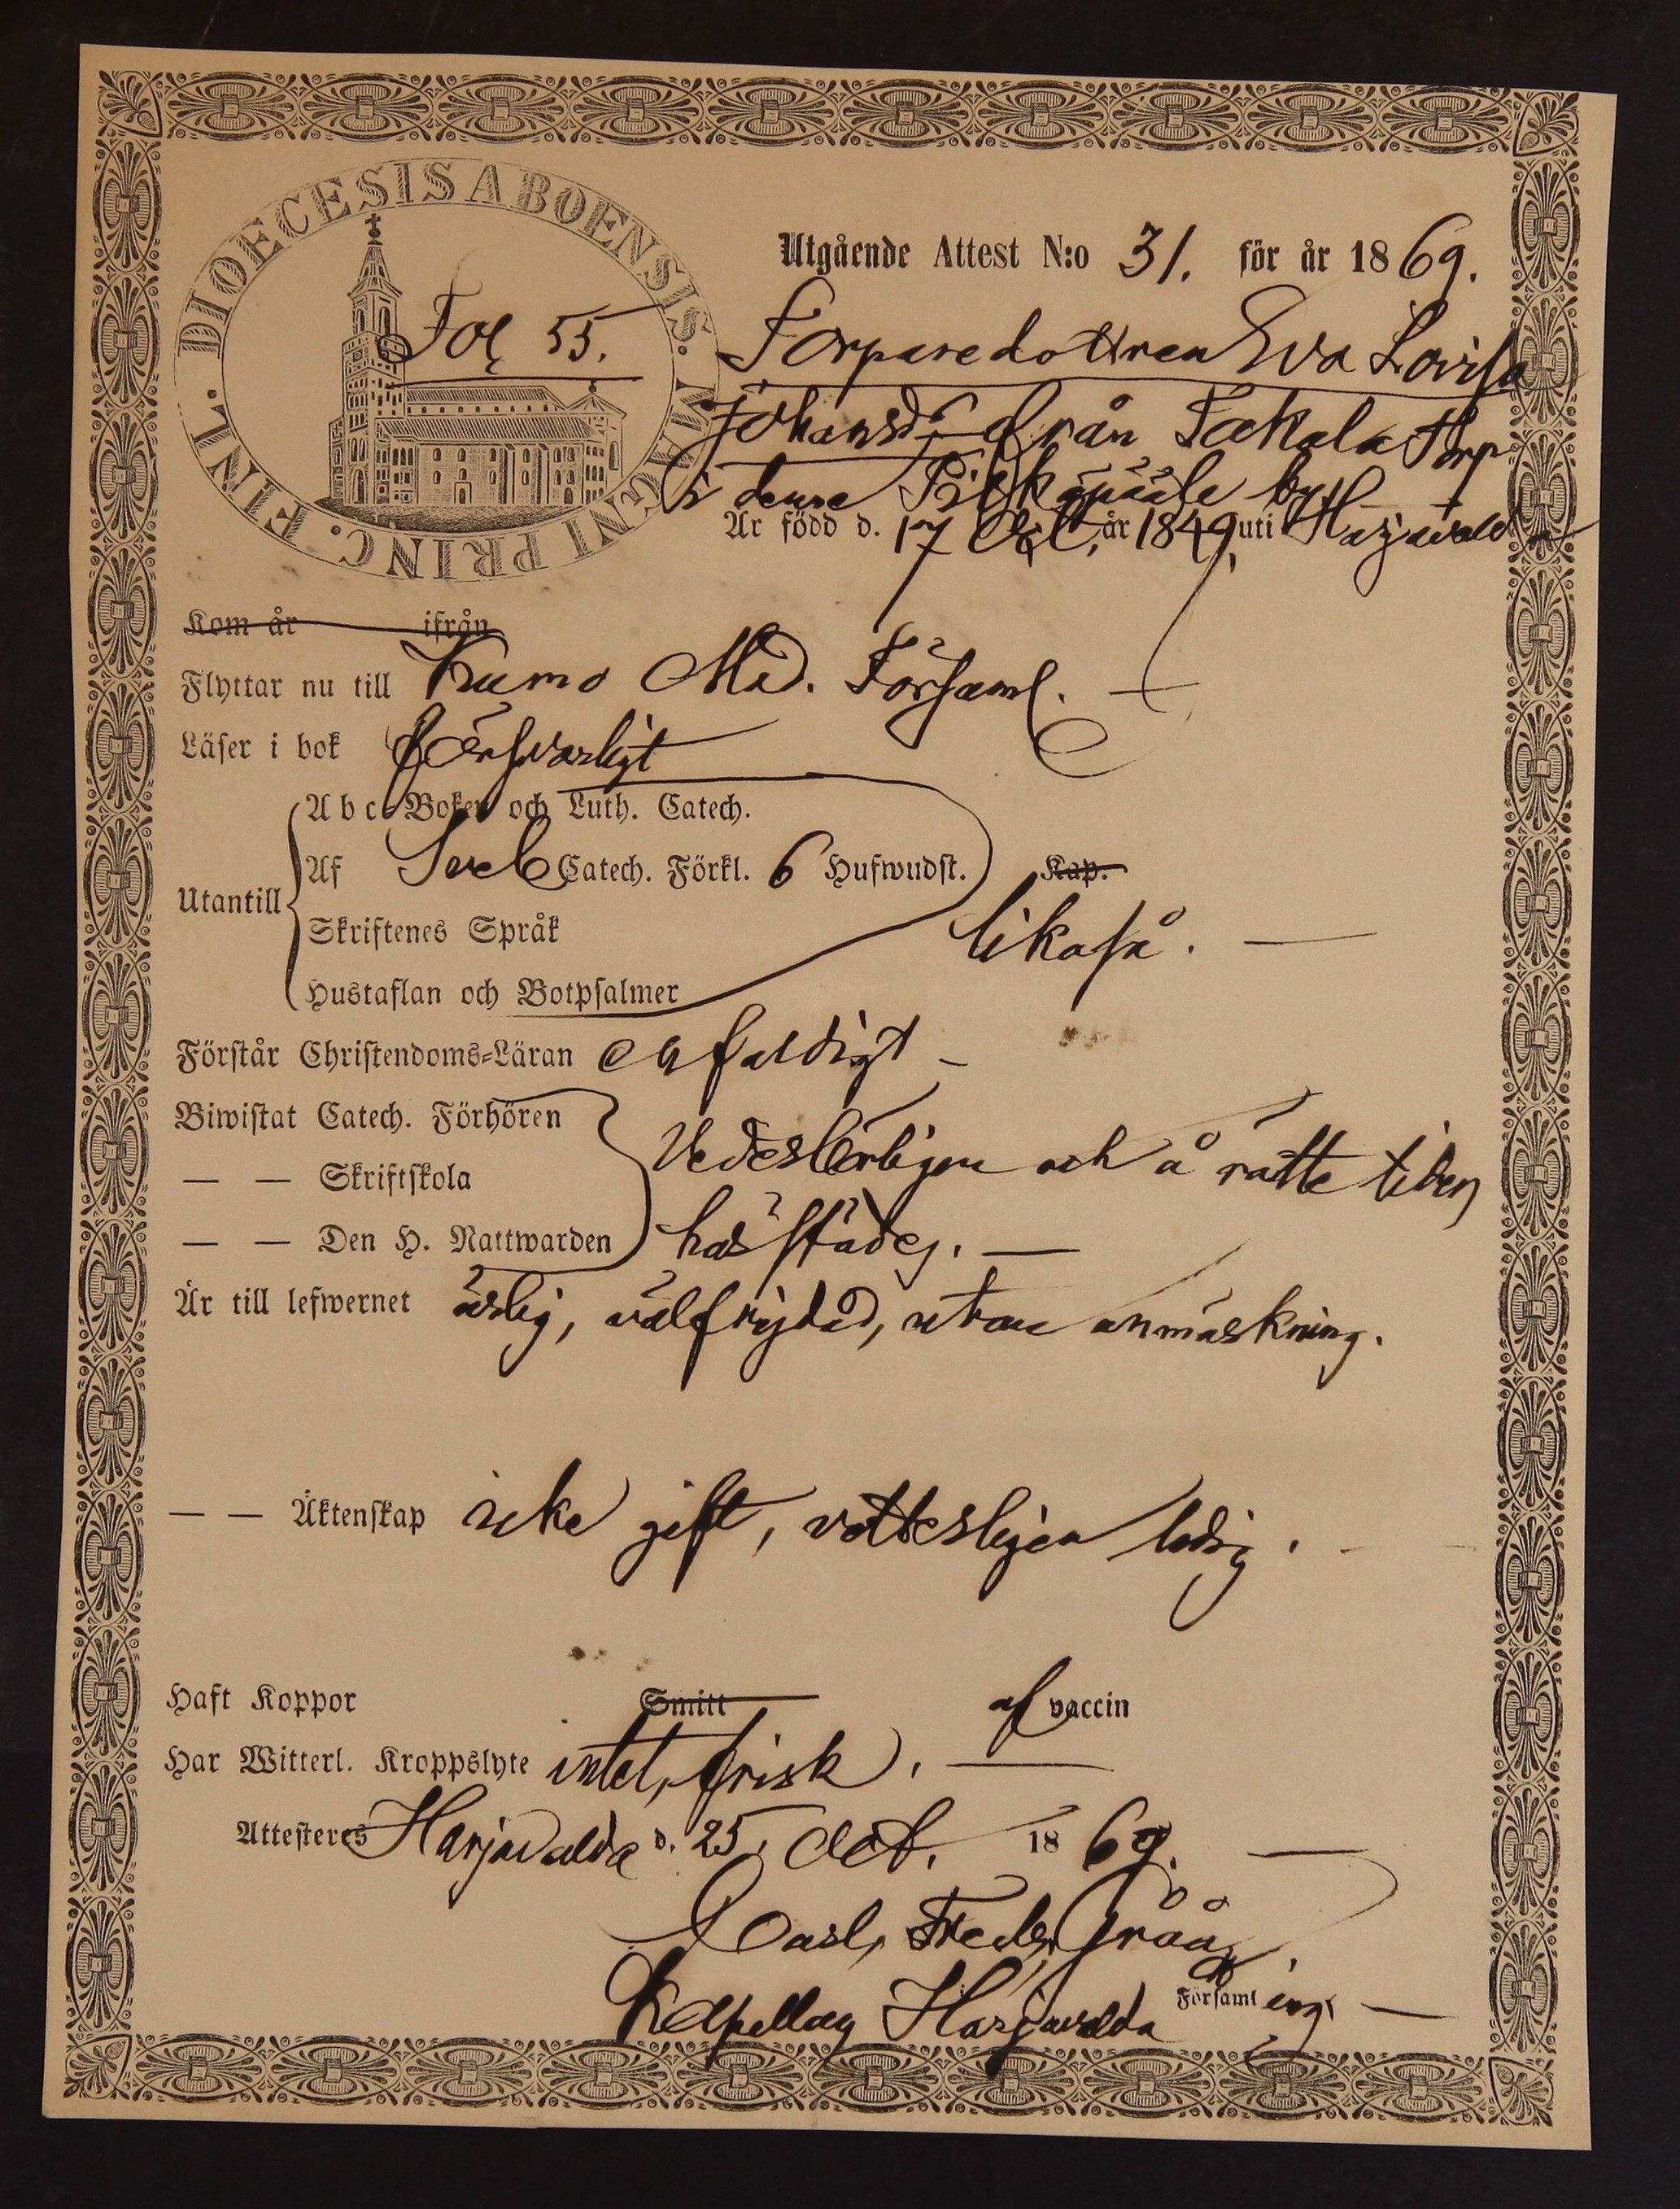 DIOECESIS ABOENSIS. MAGNI PRINC. FINL.
Utgående Attest N:o 31. för år 1869.
Fol 55.
Torparedottren Eva Lovisa
Johansdr från Takala torp
i denna by
Är född d. 17 Oct. år 1849, uti Harjavalda
Kom år ifrån
Flyttar nu till Kumo Md. Församl.
Läser i bok försvarligt
Abc-Boken och Luth. Catech.
Af Sveb Catech. Förkl. 6 Hufwudst. Kap.
Utantill
Skriftenes Språk
likaså.
Hustaflan och Botpsalmer
Förstår Christendoms-Läran enfaldigt
Biwistat Catech. Förhören
— — Skriftskola
Vederbörligen och å rätte tider
— — Den H. Nattwarden
härstädes.
Är till lefwernet ärlig, välfrejdad, utan anmärkning.
— — Äktenskap icke gift, vitterligen ledig.
Haft Koppor Smitt af vaccin
Har Witterl. Kroppslyte intet, frisk.
Attesteras Harjavalda d. 25 Oct. 1869.
Carl Fredr. Gröön
Kapellan Harjavalda Församling.